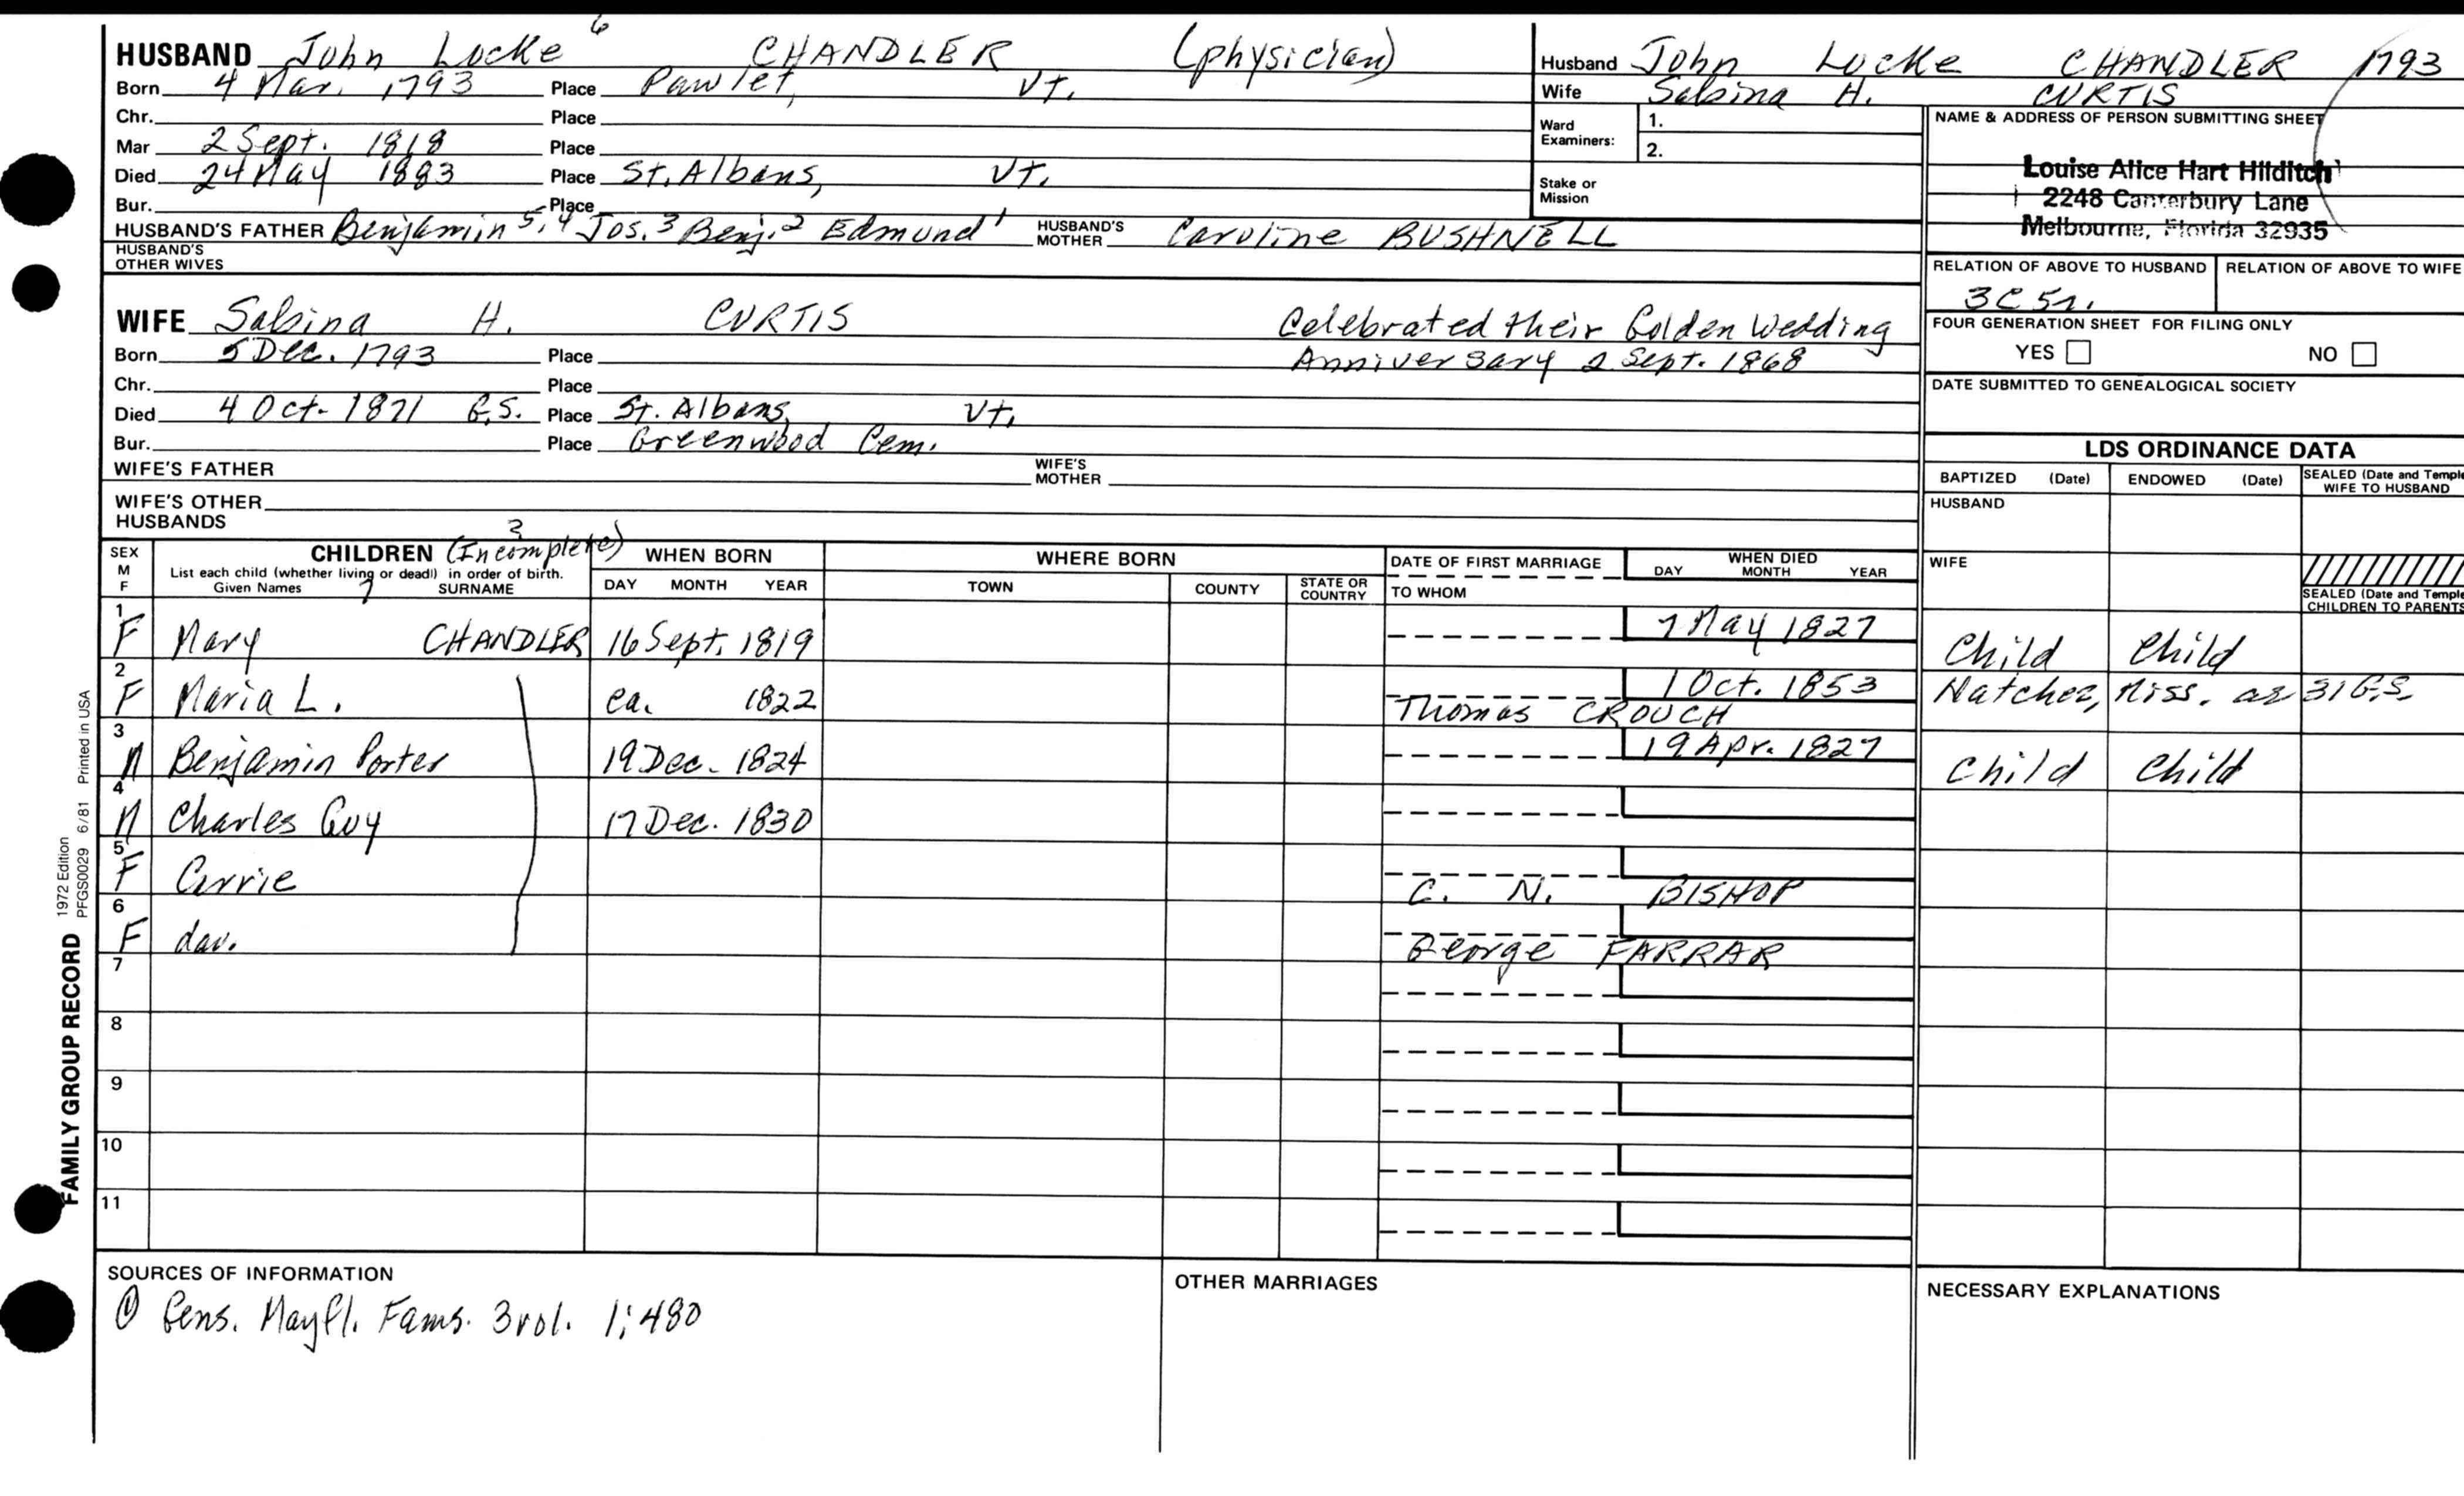 HUSBAND John Locke 6 CHANDLER (physician)
Born 4 Mar. 1793 Place Pawlet, Vt.
Chr. Place
Mar 2 Sept. 1818 Place
Died 24 May 1883 Place St. Albans, Vt.
Bur. Place
HUSBAND'S FATHER Benjamin 5,4 Jos. 3 Benj. 2 Edmund 1 HUSBAND'S MOTHER Caroline BUSHNELL
HUSBAND'S OTHER WIVES
WIFE Sabina H. CURTIS
Celebrated their Golden Wedding
Anniversary 2 Sept. 1868
Born 5 Dec. 1793 Place
Chr. Place
Died 4 Oct. 1871 G.S. Place St. Albans, Vt.
Bur. Place Greenwood Cem.
WIFE'S FATHER WIFE'S MOTHER
WIFE'S OTHER HUSBANDS
Husband John Locke CHANDLER 1793
Wife Sabina H. CURTIS
Ward Examiners: 1.
2.
Stake or Mission
NAME & ADDRESS OF PERSON SUBMITTING SHEET
Louise Alice Hart Hilditch
2248 Canterbury Lane
Melbourne, Florida 32935
RELATION OF ABOVE TO HUSBAND RELATION OF ABOVE TO WIFE
3C 5r.
FOUR GENERATION SHEET FOR FILING ONLY
YES NO
DATE SUBMITTED TO GENEALOGICAL SOCIETY
LDS ORDINANCE DATA
BAPTIZED (Date) ENDOWED (Date) SEALED (Date and Temple) WIFE TO HUSBAND
HUSBAND
WIFE
SEALED (Date and Temple) CHILDREN TO PARENTS
SEX M F
CHILDREN (Incomplete) ?
List each child (whether living or dead) in order of birth.
Given Names SURNAME
WHEN BORN
DAY MONTH YEAR
WHERE BORN
TOWN COUNTY STATE OR COUNTRY
DATE OF FIRST MARRIAGE
TO WHOM
WHEN DIED
DAY MONTH YEAR
1 F Mary CHANDLER 16 Sept. 1819 7 May 1827 Child Child
2 F Maria L. ca. 1822 1 Oct. 1853 Natchez, Miss. ae 31 G.S.
Thomas CROUCH
3 M Benjamin Porter 19 Dec. 1824 19 Apr. 1827 Child Child
4 M Charles Guy 17 Dec. 1830
5 F Carrie C. N. BISHOP
6 F dau. George FARRAR
7
8
9
10
11
FAMILY GROUP RECORD 1972 Edition
PFGS0029 6/81 Printed in USA
SOURCES OF INFORMATION
① Gens. Mayfl. Fams. 3 vol. 1:480
OTHER MARRIAGES
NECESSARY EXPLANATIONS